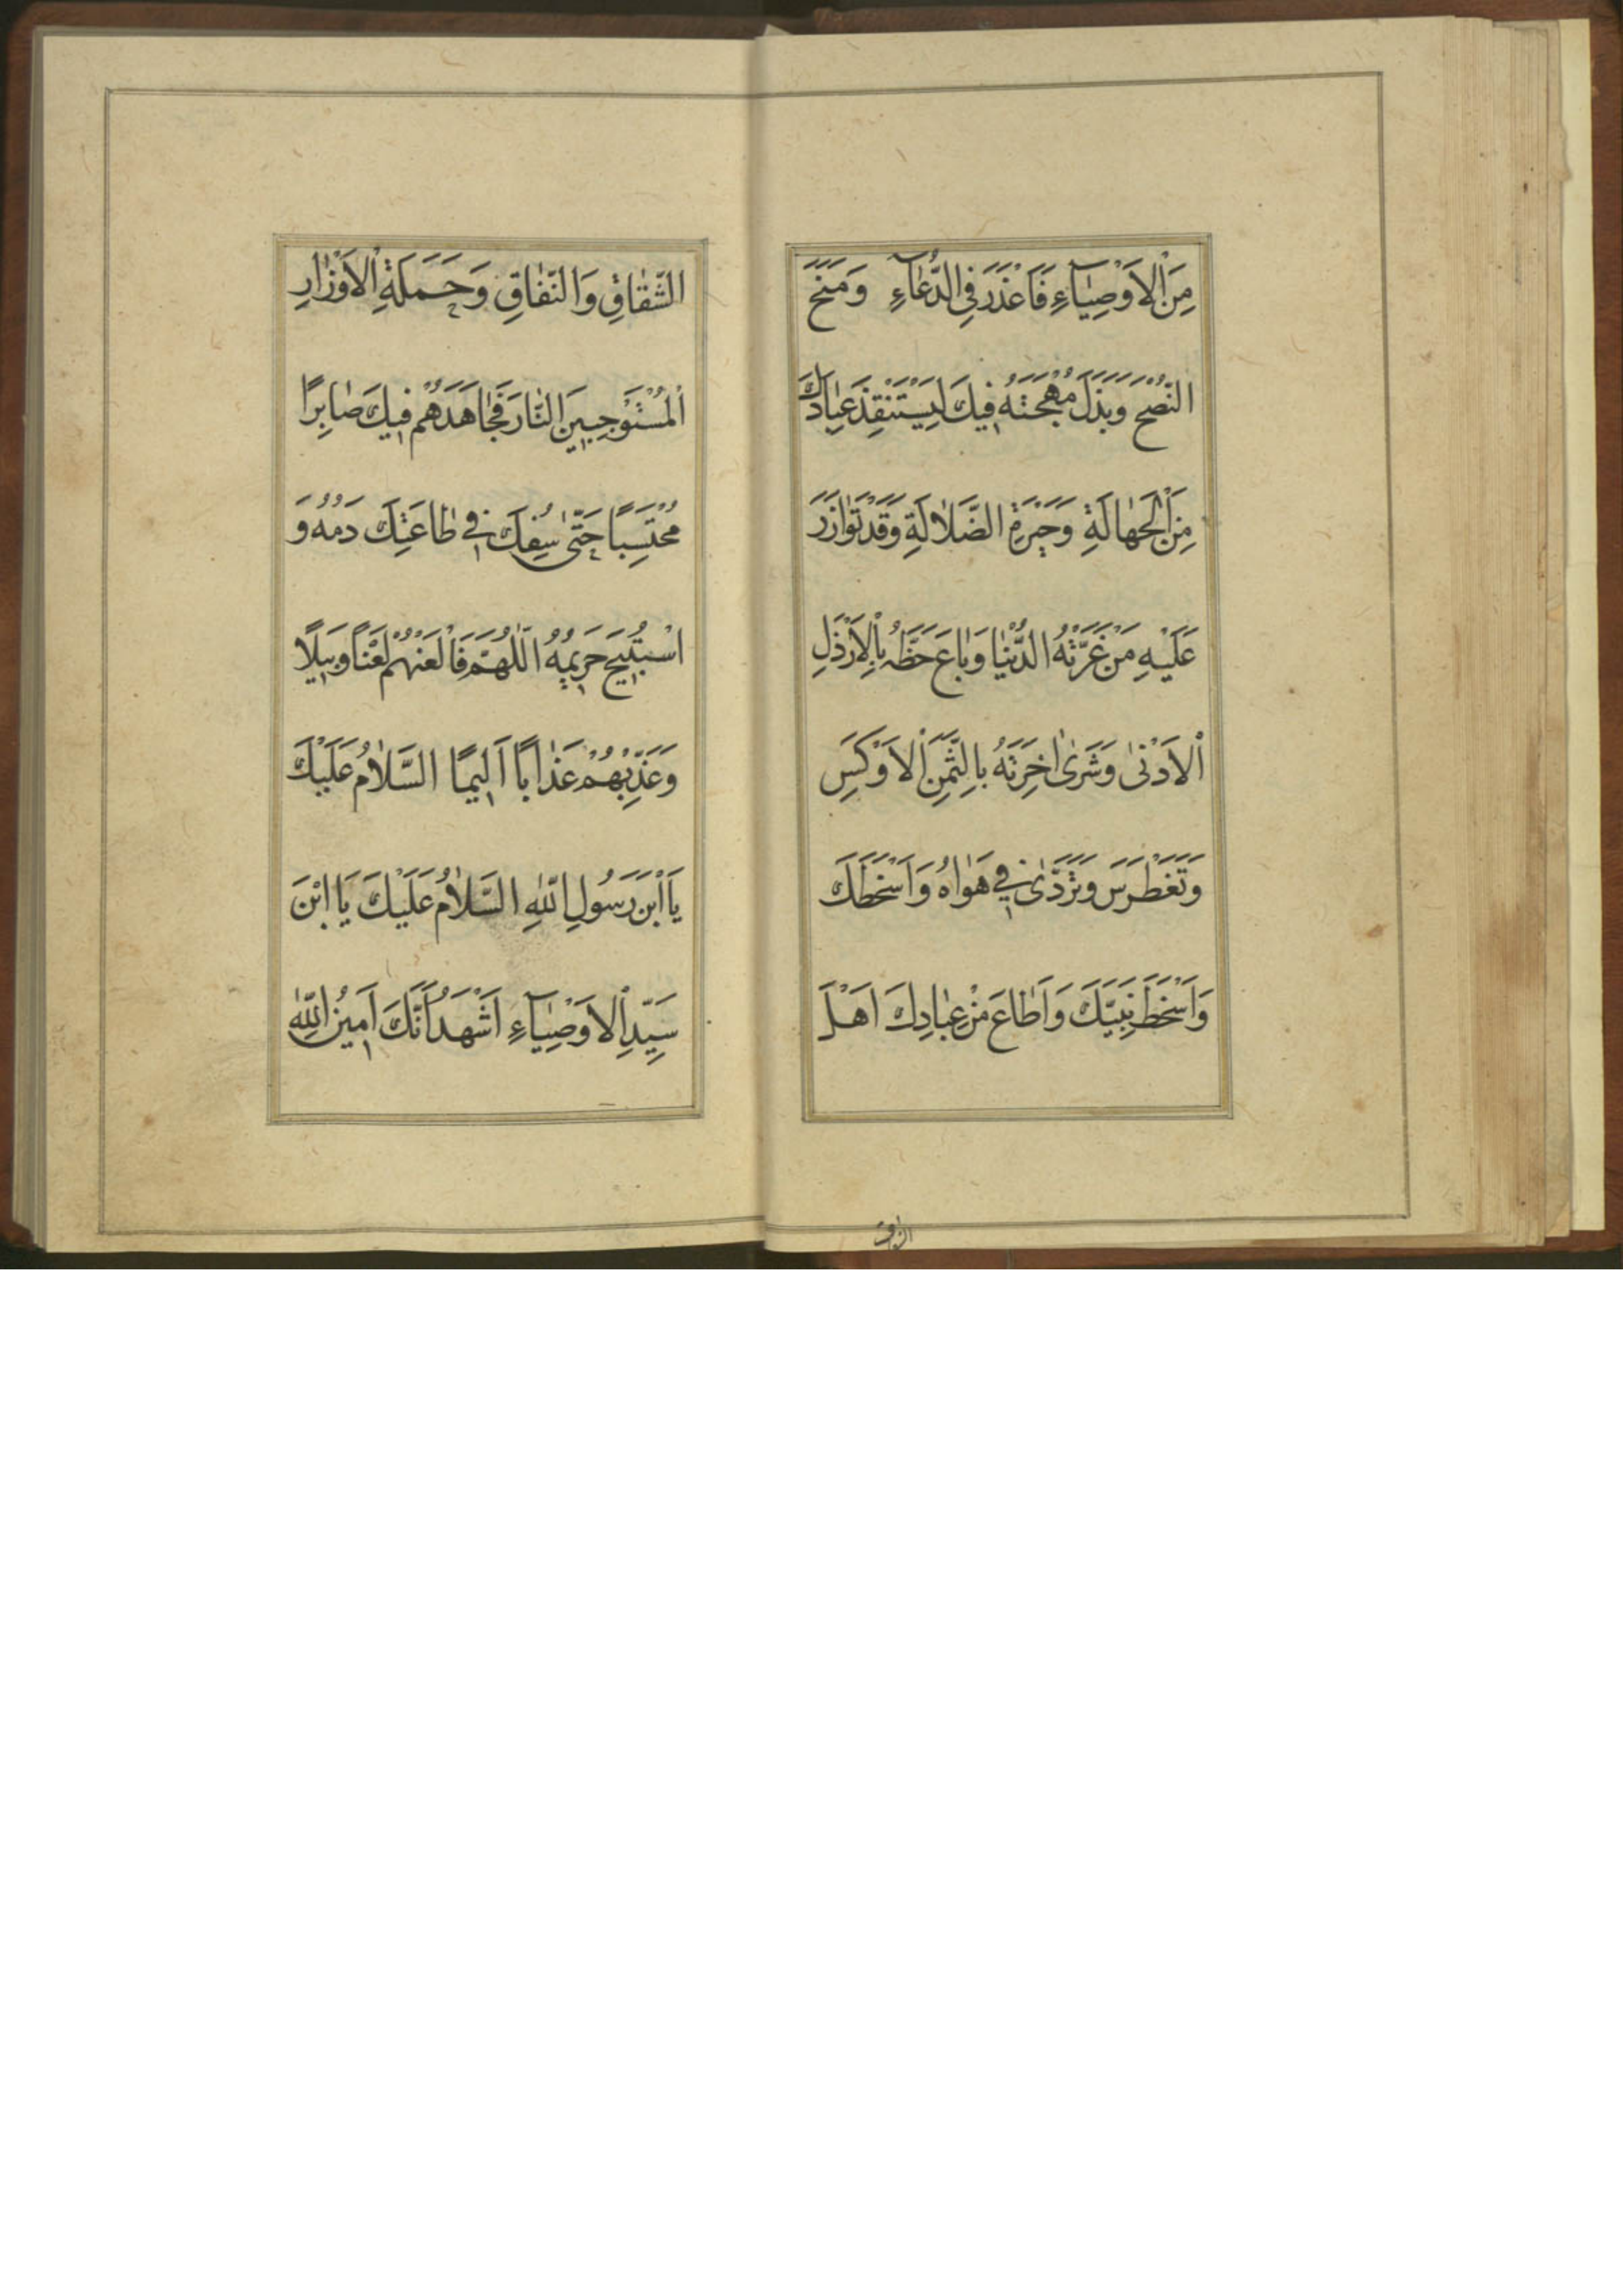 مِنَ ٱلاَوْصِيٰآءِ فَاَعْذَرَ فِي الدُّعٰآءِ وَمَنَحَ
النُّصْحَ وَبَذَلَ مُهْجَتَهُ فِيكَ لِيَسْتَنْقِذَ عِبٰادَكَ
مِنَ ٱلجَهٰالَةِ وَحَيْرَةِ الضَّلٰالَةِ وَقَدْ تَوٰازَرَ
عَلَيْهِ مَنْ غَرَّتْهُ الدُّنْيٰا وَبٰاعَ حَظَّهُ بِٱلاَرْذَلِ
ٱلاَدْنىٰ وَشَرىٰ اخِرَتَهُ بِالثَّمَنِ ٱلاَوْكَسِ
وَتَغَطْرَسَ وَتَرَدّىٰ فِي هَوٰاهُ وَاَسْخَطَكَ
وَاَسْخَطَ نَبِيَّكَ وَاَطٰاعَ مِنْ عِبٰادِكَ اَهْلَ
الشقاق
الشِّقٰاقِ وَالنِّفٰاقِ وَحَمَلَةِ ٱلاَوْزٰارِ
ٱلمُسْتَوْجِبِينَ النّٰارَ فَجٰاهَدَهُمْ فِيكَ صٰابِرًا
مُحْتَسِبًا حَتّىٰ سُفِكَ فِي طٰاعَتِكَ دَمُهُ وَ
اسْتُبِيحَ حَرِيمُهُ اَللّٰهُمَّ فَالْعَنْهُمْ لَعْنًا وَبِيلًا
وَعَذِّبْهُمْ عَذٰابًا اَلِيمًا السَّلٰامُ عَلَيْكَ
يَا ٱبْنَ رَسُولِ اللّٰهِ السَّلٰامُ عَلَيْكَ يَا ابْنَ
سَيِّدِ ٱلاَوْصِيٰآءِ اَشْهَدُ اَنَّكَ اَمِينُ اللّٰهِ